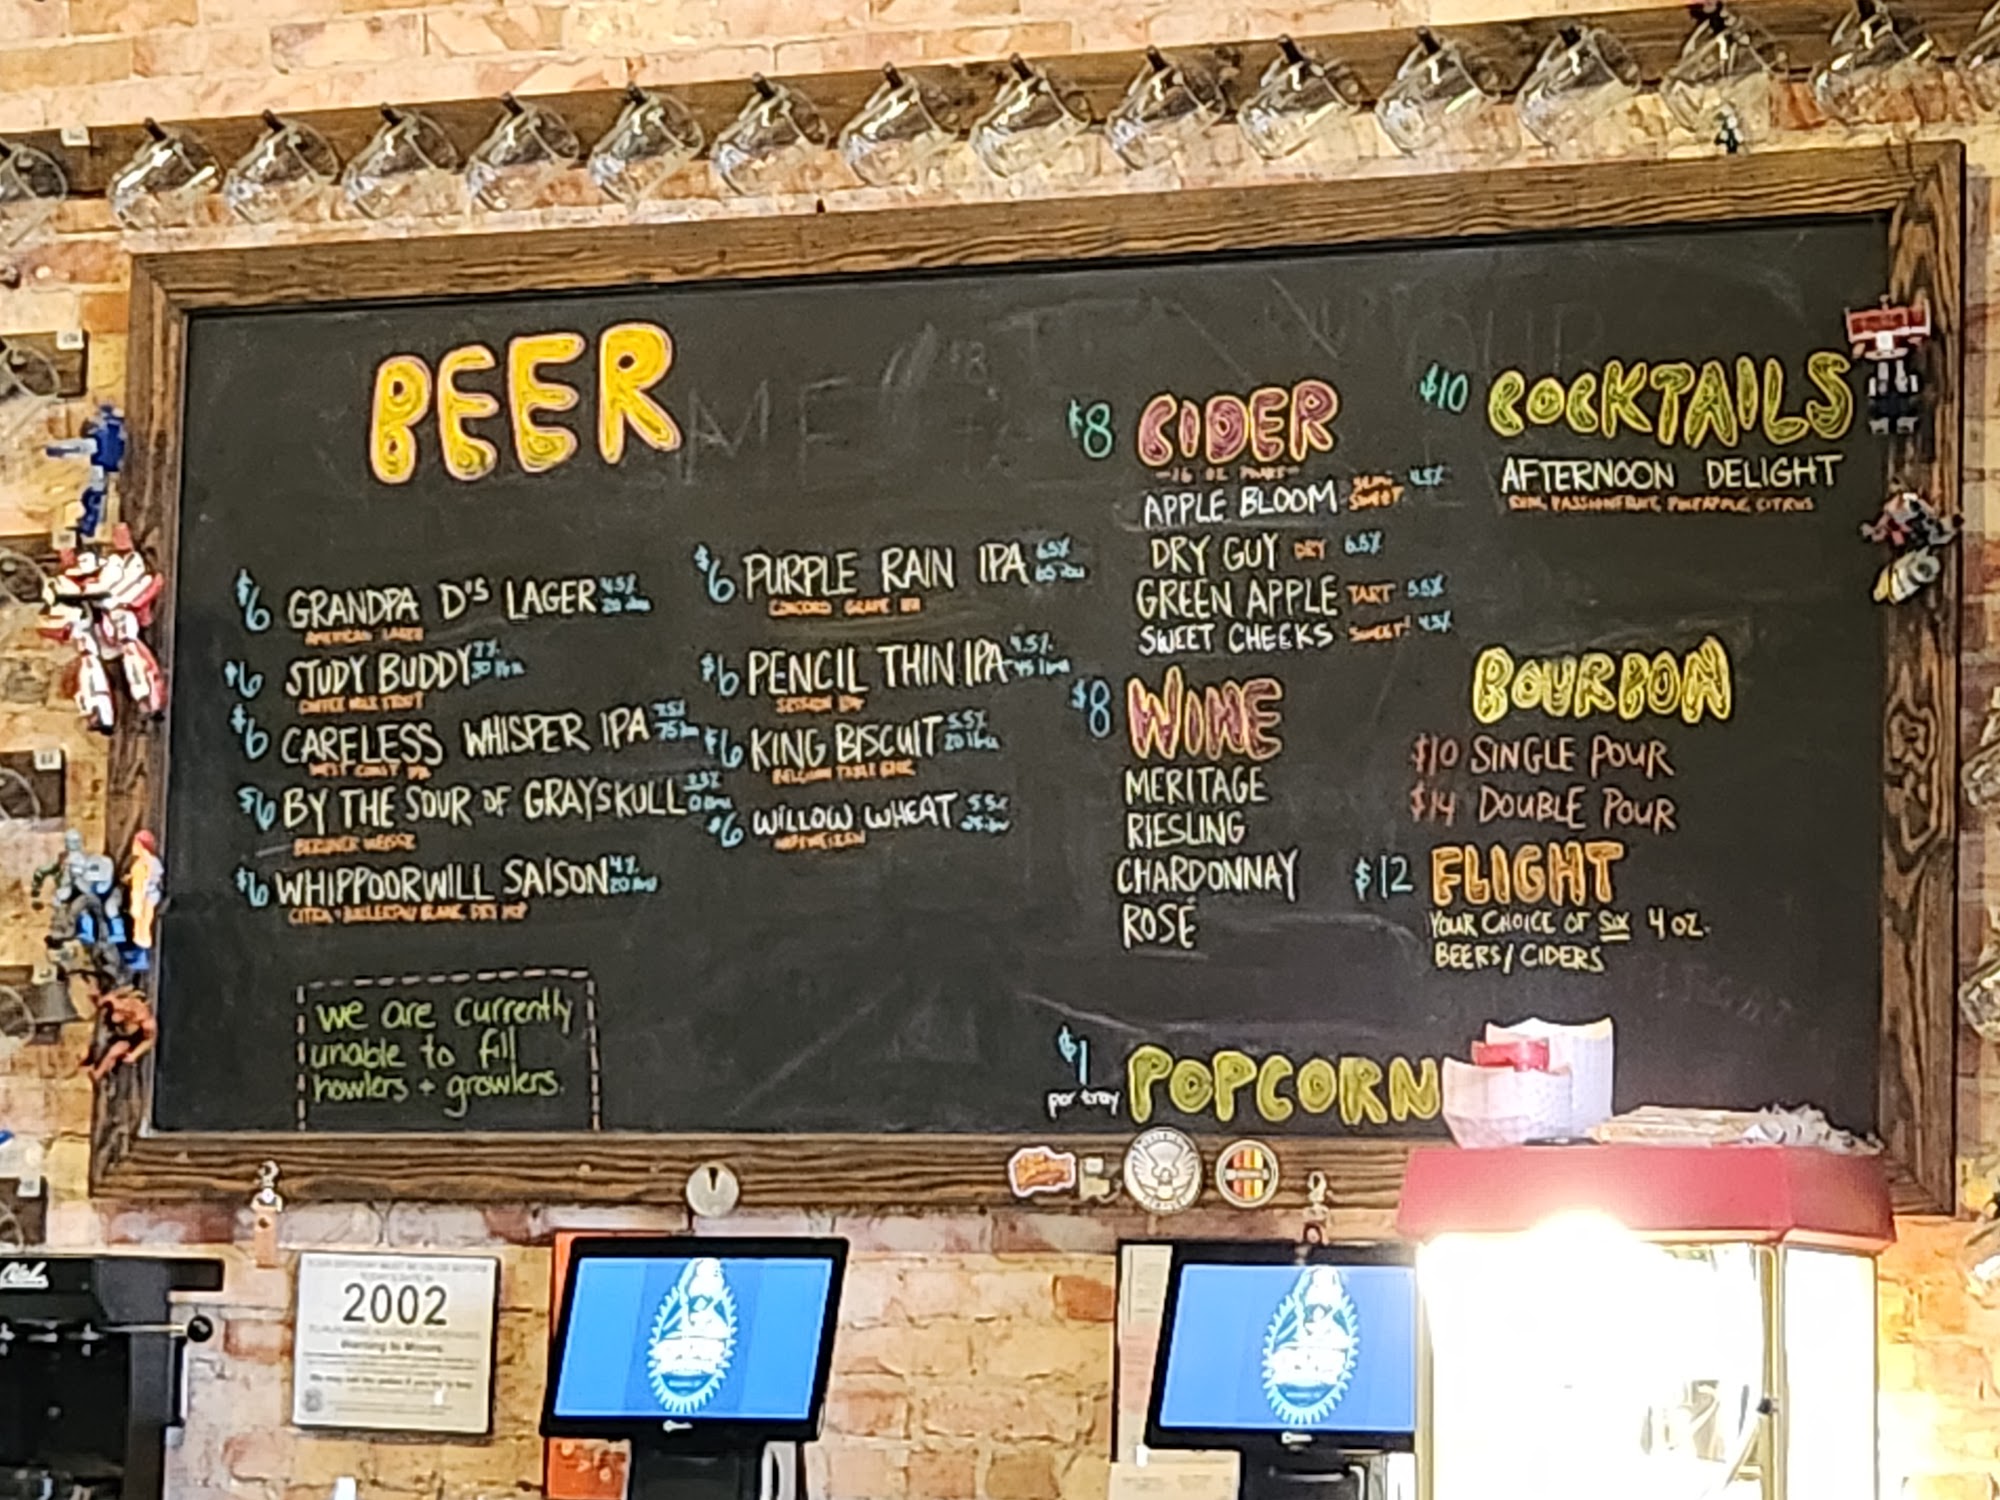 BEER
$6 GRANDPA D'S LAGER 4.5%
20 ibu
AMERICAN LAGER
$6 STUDY BUDDY 7%
30 ibu
COFFEE MILK STOUT
$6 CARELESS WHISPER IPA 7.5%
75 ibu
WEST COAST IPA
$6 BY THE SOUR OF GRAYSKULL 3.5%
0 ibu
BERLINER WEISSE
$6 WHIPPOORWILL SAISON 4%
20 ibu
CITRA + BLANC DRY HOP
we are currently
unable to fill
howlers + growlers.
$6 PURPLE RAIN IPA 6.5%
65 ibu
CONCORD GRAPE IPA
$6 PENCIL THIN IPA 4.5%
45 ibu
SESSION IPA
$6 KING BISCUIT 5.5%
20 ibu
BELGIAN TABLE BEER
$6 WILLOW WHEAT 5.5%
HEFEWEIZEN
$8 CIDER
16 OZ
APPLE BLOOM SEMI SWEET 4.5%
DRY GUY DRY 6.5%
GREEN APPLE TART 5.5%
SWEET CHEEKS SWEET! 4.5%
$8 WINE
MERITAGE
RIESLING
CHARDONNAY
ROSE
$1 per tray POPCORN
$10 COCKTAILS
AFTERNOON DELIGHT
RUM, PASSIONFRUIT, PINEAPPLE, CITRUS
BOURBON
$10 SINGLE POUR
$14 DOUBLE POUR
$12 FLIGHT
YOUR CHOICE OF SIX 4 OZ.
BEERS/CIDERS
2002
Warning to Minors